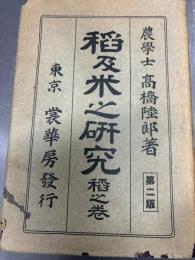 農學士 高橋陸郎著
稻及米之硏究 稻之卷
第二版
東京 裳華房發行